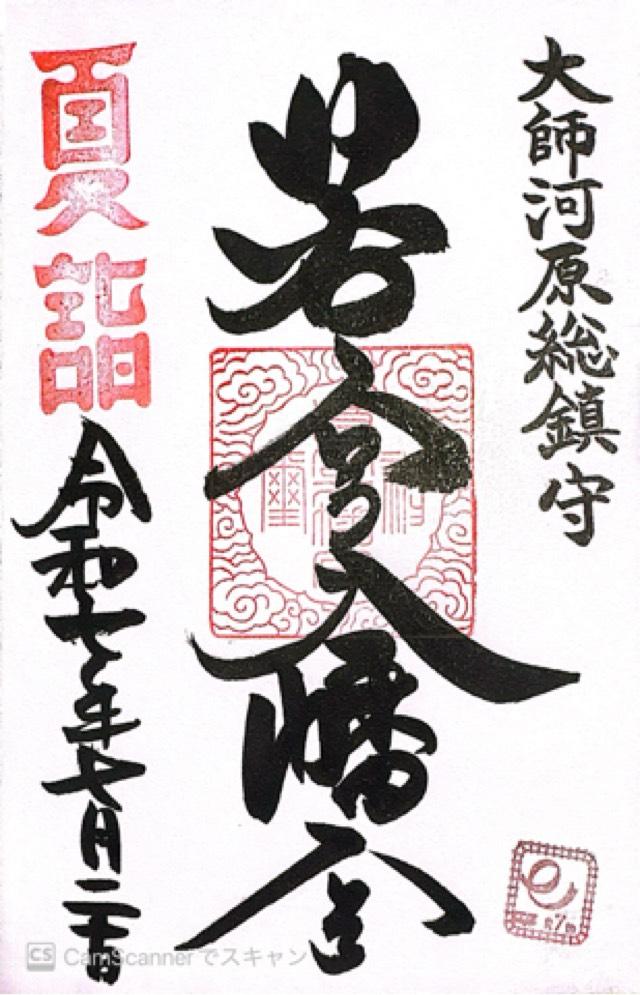 大師河原総鎮守
若宮八幡宮
夏詣
令和七年七月二十日
CS CamScanner でスキャン